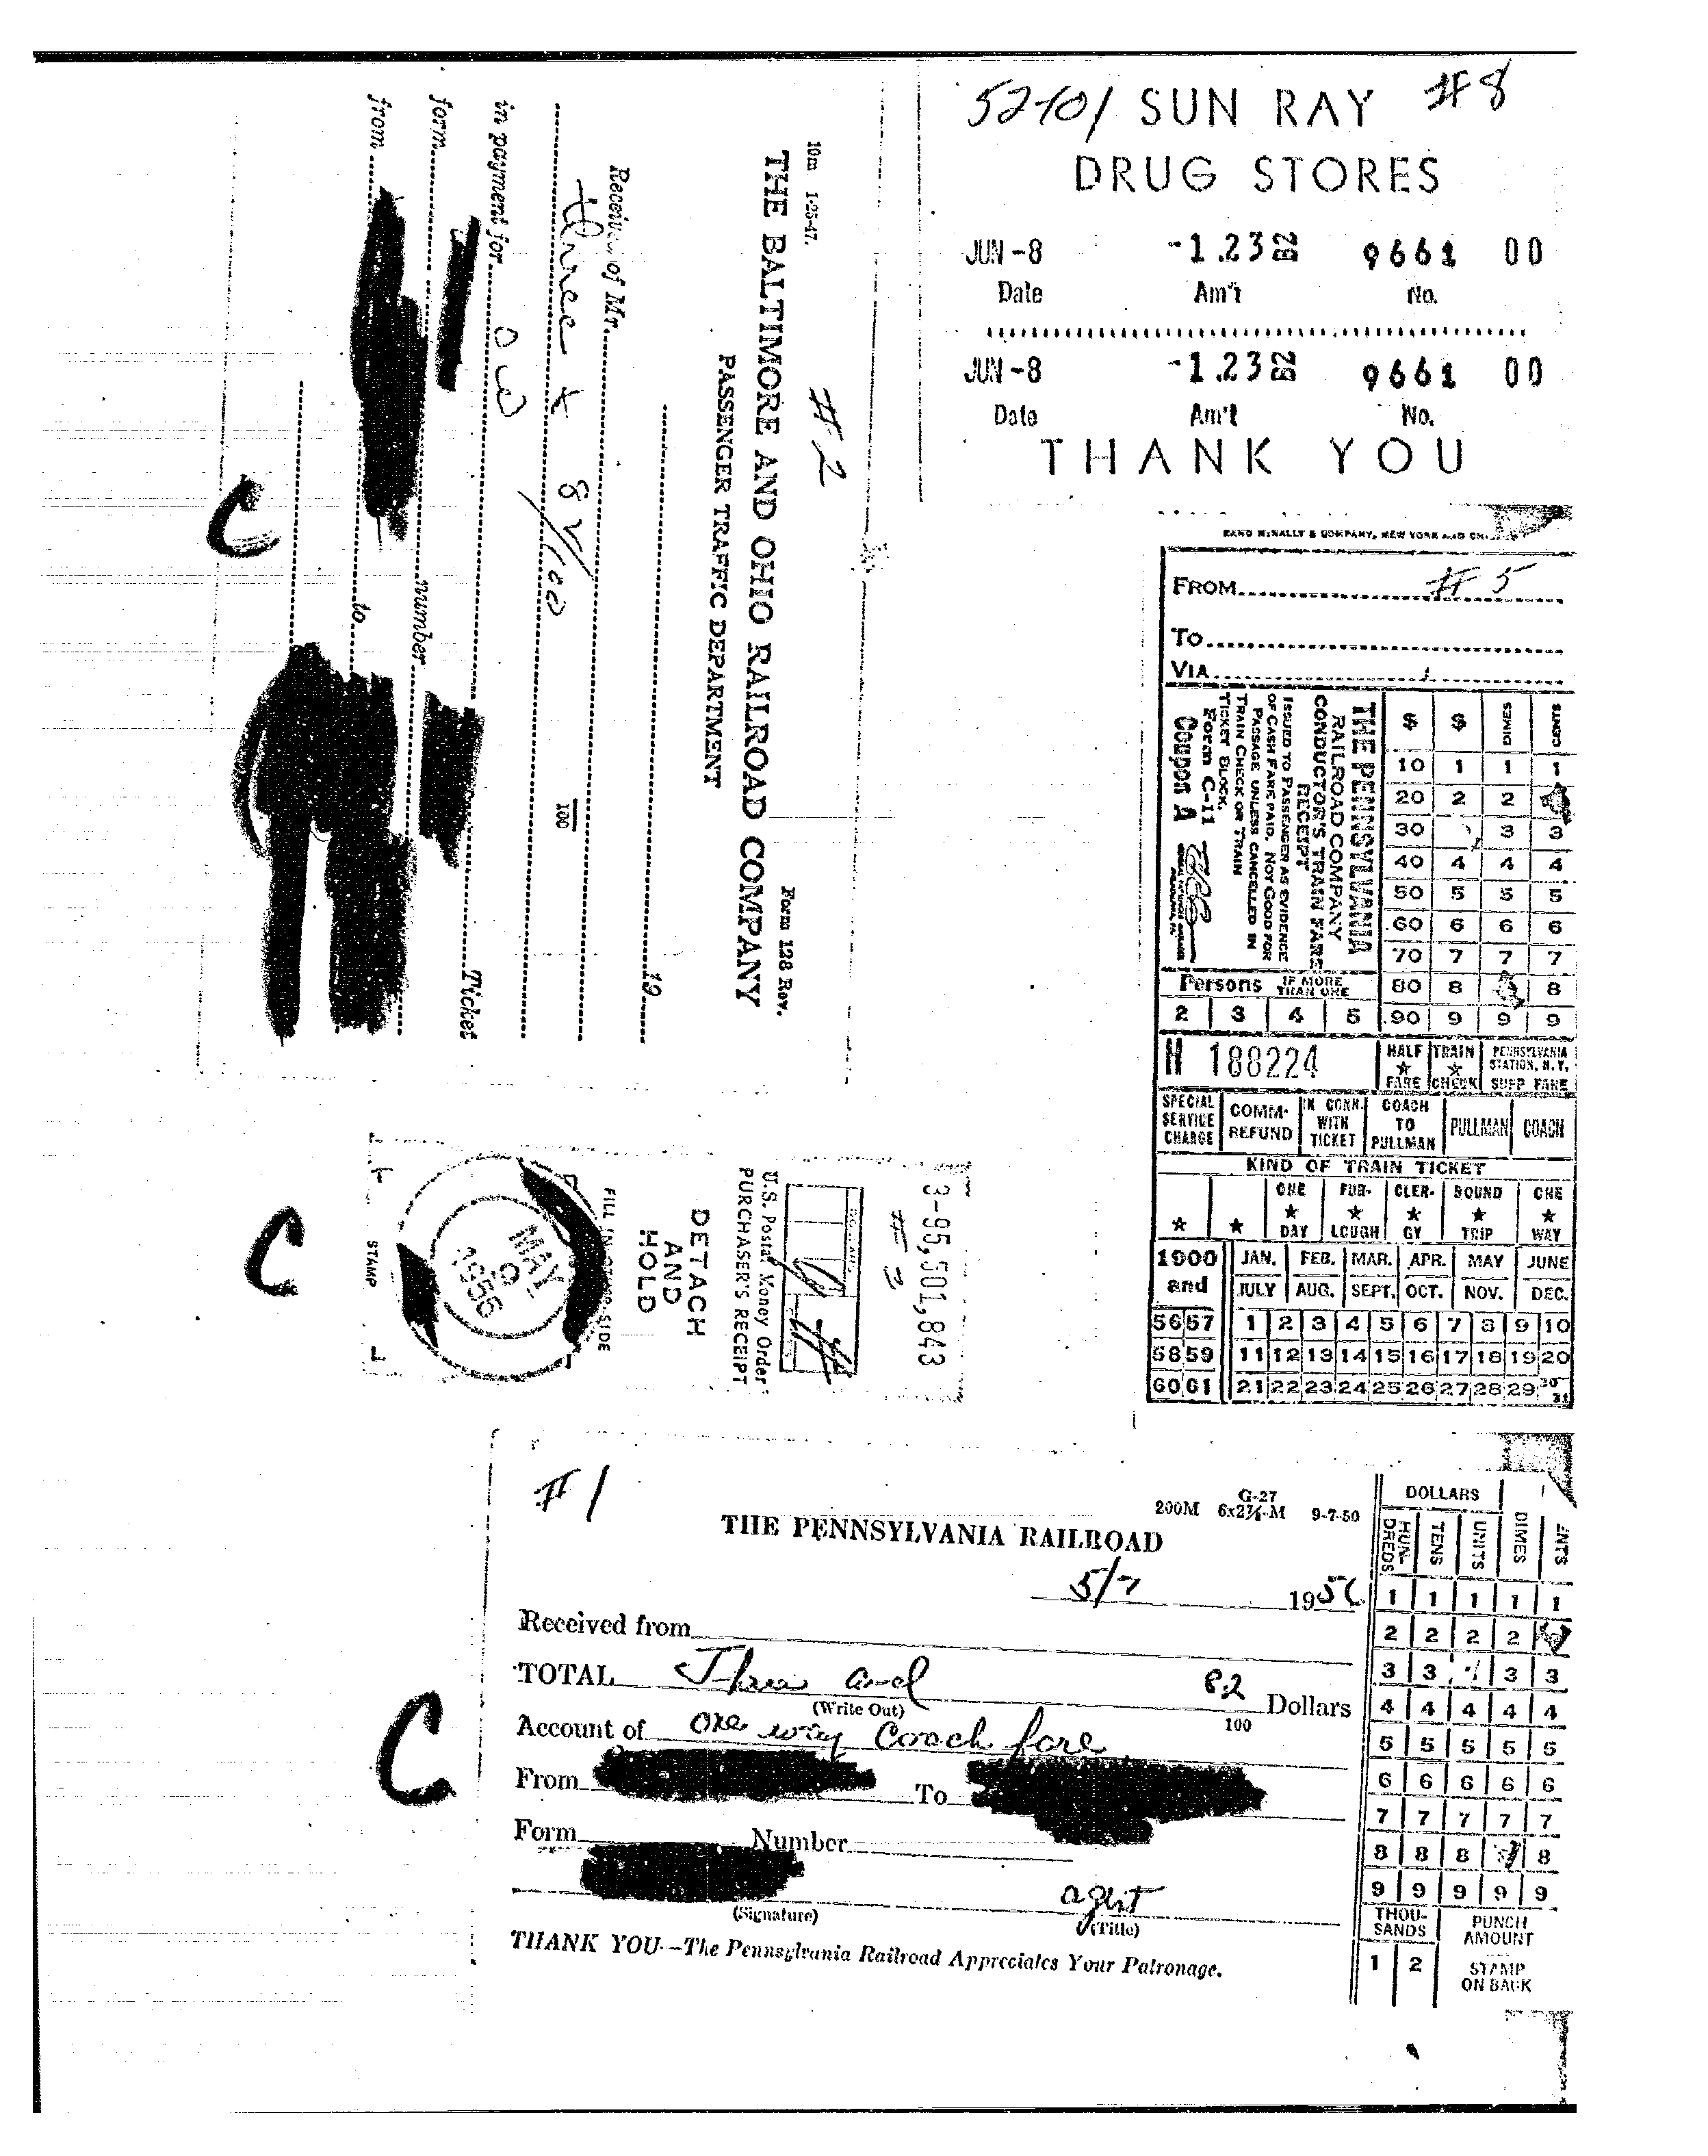 52-101 SUN RAY #8
DRUG STORES
JUN -8 -1.23 B2 9661 00
Date Am't No.
JUN -8 -1.23 B2 9661 00
Date Am't No.
THANK YOU
10m 1-25-47. #2 Form 128 Rev.
THE BALTIMORE AND OHIO RAILROAD COMPANY
PASSENGER TRAFFIC DEPARTMENT
19
Received of Mr.
three + 82/100 100
in payment for Ticket
form number
from to
C
RAND McNALLY & COMPANY, NEW YORK AND
FROM #5
TO
VIA
THE PENNSYLVANIA
RAILROAD COMPANY
CONDUCTOR'S TRAIN FARE
RECEIPT
ISSUED TO PASSENGER AS EVIDENCE
OF CASH FARE PAID. NOT GOOD FOR
PASSAGE UNLESS CANCELLED IN
TRAIN CHECK OR TRAIN
TICKET BLOCK.
Form C-11
Coupon A
$ $ DIMES CENTS
10 1 1 1
20 2 2
30 3 3
40 4 4 4
50 5 5 5
60 6 6 6
70 7 7 7
80 8 8
90 9 9 9
Persons IF MORE THAN ONE
2 3 4 5
H 188224
HALF FARE TRAIN CHECK PENNSYLVANIA STATION, N.Y. SUPP FARE
SPECIAL SERVICE CHARGE COMM- REFUND IN CONN. WITH TICKET COACH TO PULLMAN PULLMAN COACH
KIND OF TRAIN TICKET
ONE DAY FUR- LOUGH CLER- GY ROUND TRIP ONE WAY
1900 and JAN. FEB. MAR. APR. MAY JUNE
JULY AUG. SEPT. OCT. NOV. DEC.
56 57 1 2 3 4 5 6 7 8 9 10
58 59 11 12 13 14 15 16 17 18 19 20
60 61 21 22 23 24 25 26 27 28 29 30 31
3-95,501,843
#3
U.S. Postal Money Order
PURCHASER'S RECEIPT
DETACH
AND
HOLD
FILL IN OTHER SIDE
MAY
9
1956
STAMP
C
#1
G-27
200M 6x2¾-M 9-7-50
THE PENNSYLVANIA RAILROAD
5/7 1956
Received from
TOTAL Three and 82 Dollars
(Write Out) 100
Account of one way coach fare
From To
Form Number
agent
(Signature) (Title)
THANK YOU—The Pennsylvania Railroad Appreciates Your Patronage.
C
DOLLARS
HUN- DREDS TENS UNITS DIMES
1 1 1 1 1
2 2 2 2
3 3 3 3
4 4 4 4 4
5 5 5 5 5
6 6 6 6 6
7 7 7 7 7
8 8 8 8
9 9 9 9 9
THOU- SANDS PUNCH AMOUNT
1 2 STAMP ON BACK